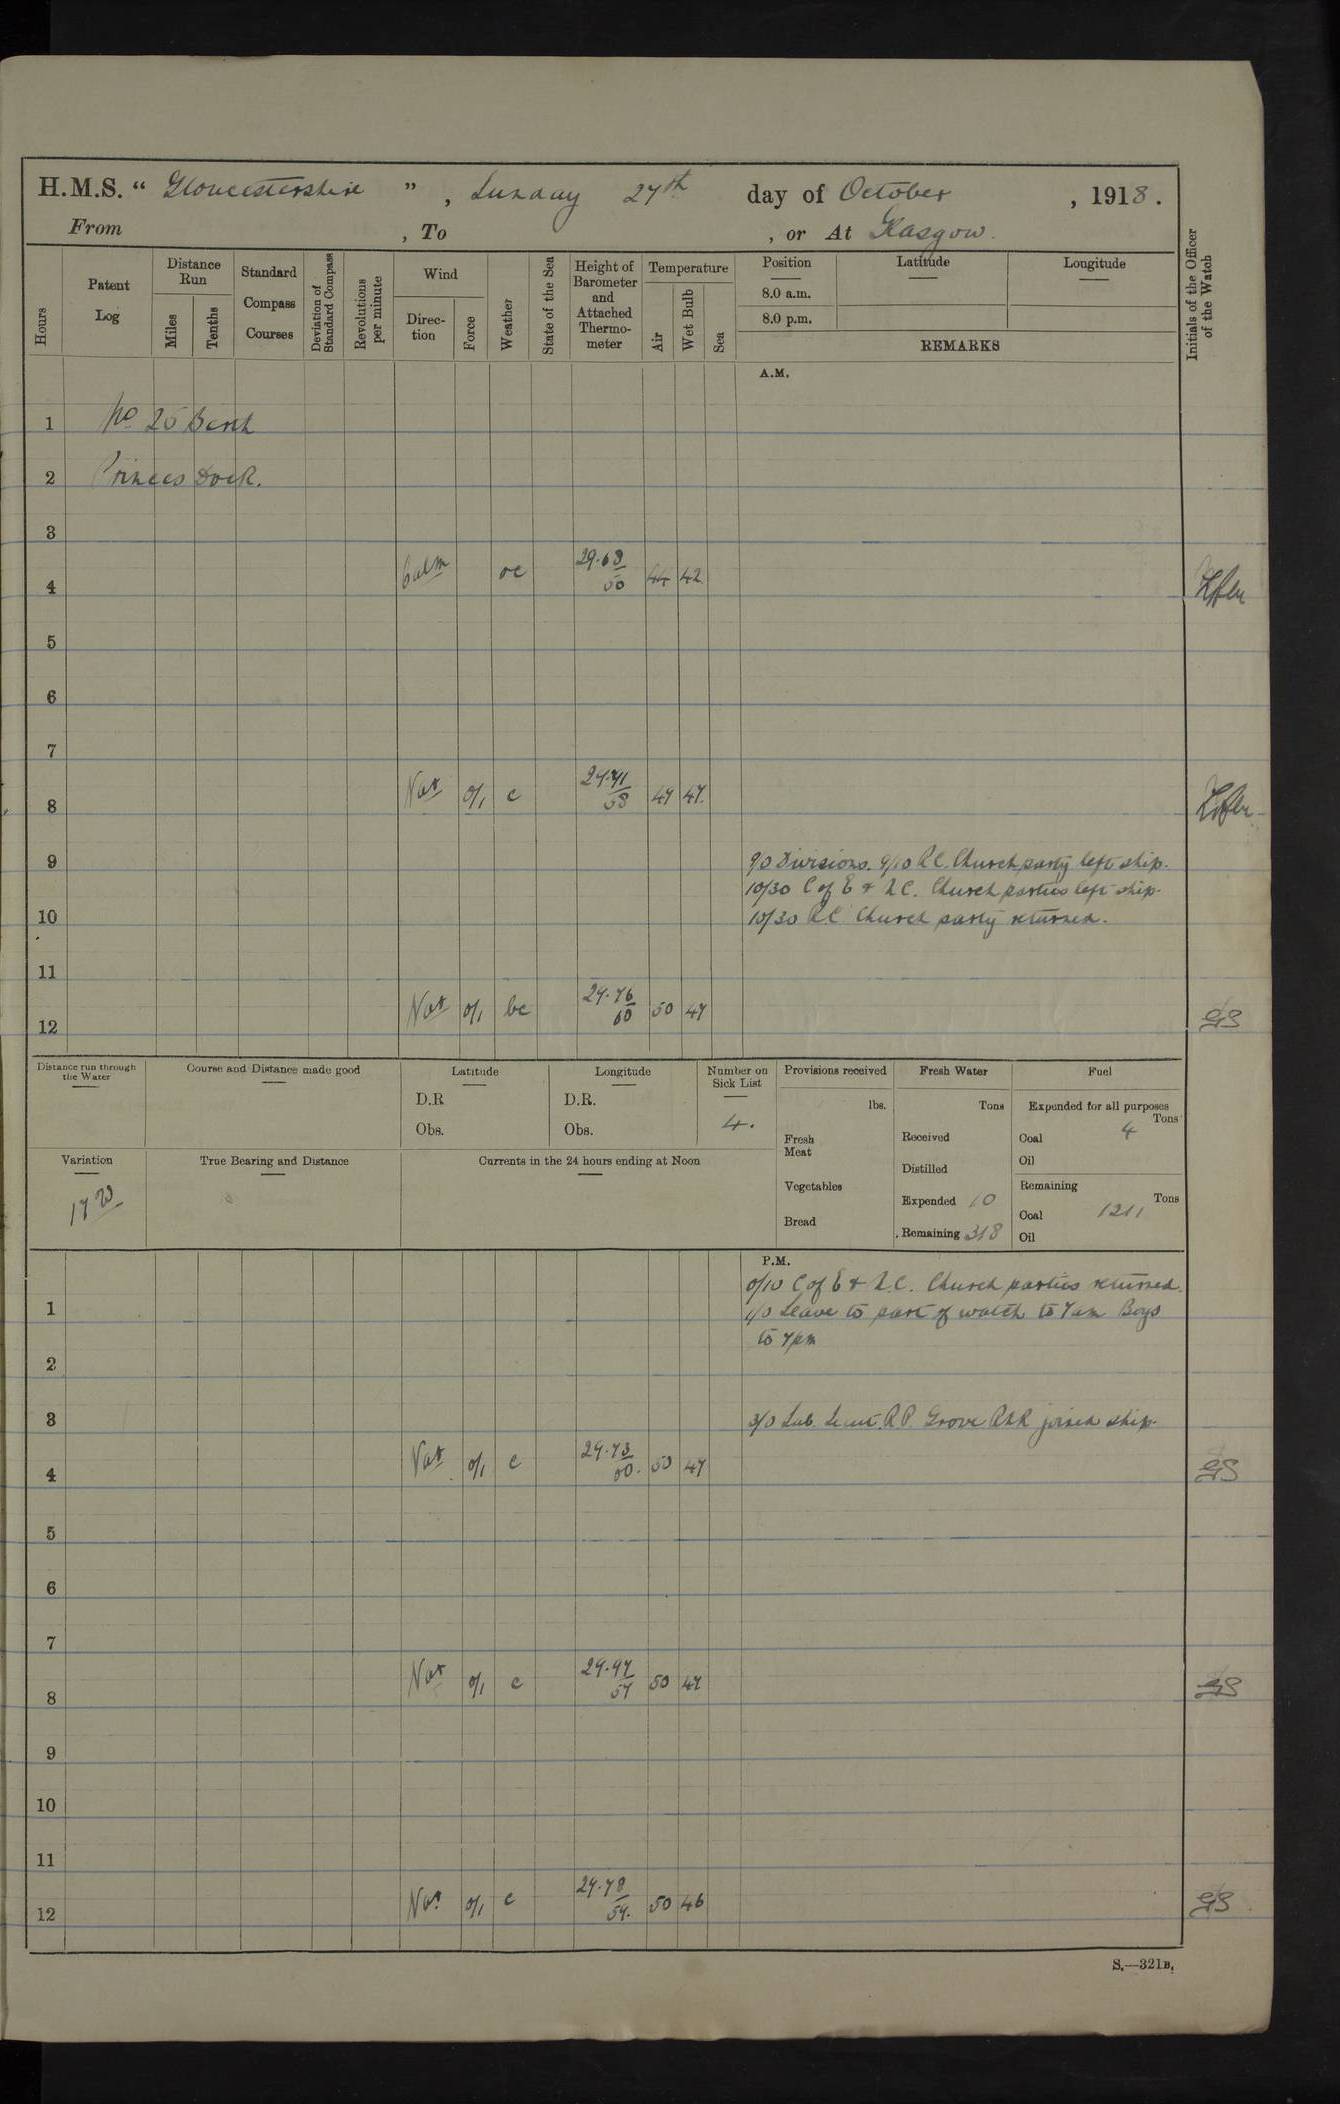 H.M.S. “ Gloucestershire ” , Sunday 27th day of October , 1918 .
From , To , or At Glasgow.
Hours
Patent Log
Distance Run
Miles
Tenths
Standard Compass Courses
Deviation of Standard Compass
Revolutions per minute
Wind
Direc-tion
Force
Weather
State of the Sea
Height of Barometer and Attached Thermo-meter
Temperature
Air
Wet Bulb
Sea
Position
8.0 a.m.
8.0 p.m.
Latitude
Longitude
REMARKS
Initials of the Officer of the Watch
A.M.
1 No 25 Berth
2 Princes Dock.
3
4 Calm oc 29.68/50 44 42
5
6
7
8 Var 0/1 c 29.71/58 47 47.
9 9/0 Divisions. 9/10 R.C. Church party left ship.
10/30 C of E & N.C. Church parties left ship.
10 10/30 R.C. Church party returned.
11
12 Var 0/1 bc 29.76/60 50 47 GS
Distance run through the Water
Course and Distance made good
Latitude
D.R
Obs.
Longitude
D.R.
Obs.
Number on Sick List
4.
Provisions received
lbs.
Fresh Meat
Vegetables
Bread
Fresh Water
Tons
Received
Distilled
Expended 10
Remaining 318
Fuel
Expended for all purposes
Tons
Coal 4
Oil
Remaining
Tons
Coal 1211
Oil
Variation
17 W
True Bearing and Distance
Currents in the 24 hours ending at Noon
P.M.
0/10 C of E & N.C. Church parties returned.
1 1/0 Leave to part of watch to 7am Boys
to 7pm
2
3 3/0 Sub. Lieut. R.P. Grove RNR joined ship.
4 Var 0/1 c 29.73/60. 50 47 GS
5
6
7
8 Var 0/1 c 29.77/57 50 47 GS
9
10
11
12 Var 0/1 c 29.78/57. 50 46 GS
S.—321B.